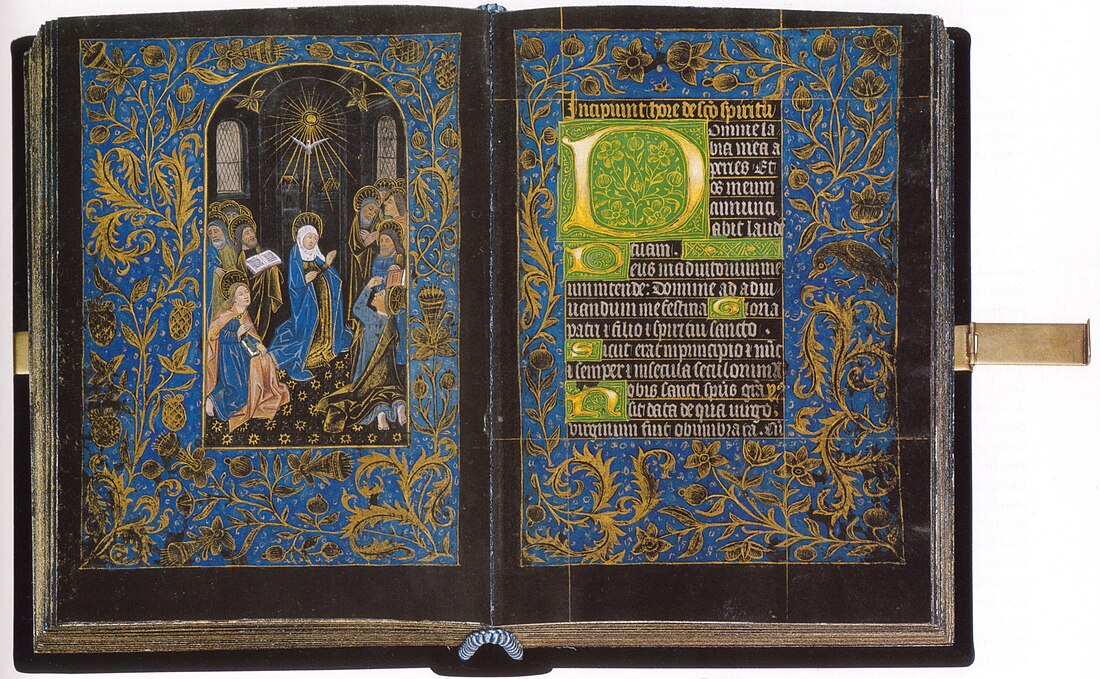 Incipiunt hore de sco spiritu
Domine la
bia mea a
peries · Et
os meum
annunci
abit laude
tuam .
Deus in adiutorium me
um intende : Domine ad adiu
uandum me festina Gloria
patri i filio i spiritui sancto .
Sicut erat in principio i nuc
i semper i in secula seculorum
Nobis sancti spus gra
sit data de qua uirgo .
virginum fuit obumbrata .